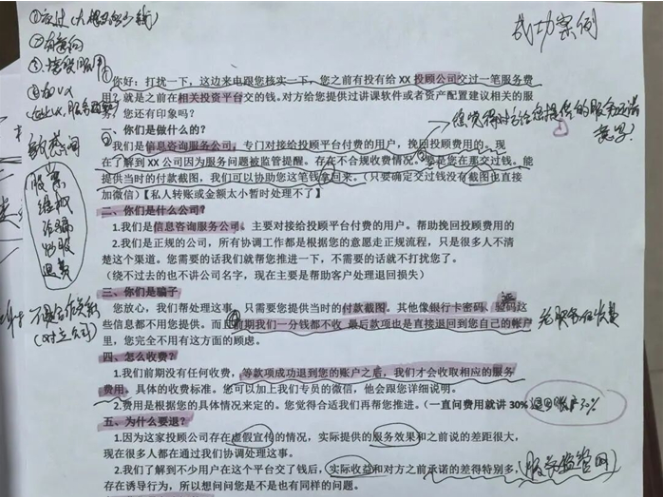 成功案例
你好：打扰一下，这边来电跟您核实一下，您之前有没有给XX投顾公司交过一笔服务费
用？就是之前在相关投资平台交的钱。对方给您提供过讲课软件或者资产配置建议相关的服
务？您还有印象吗？
一、你们是做什么的？
我们是信息咨询服务公司，专门对接给投顾平台付费的用户，挽回投顾费用的。现
在了解到XX公司因为服务问题被监管提醒。存在不合规收费情况。您在那交过钱。能
提供当时的付款截图，我们可以协助您这笔钱拿回来。（只要确定交过钱没有截图也直接
加微信）【私人转账或金额太小暂时处理不了】
二、你们是什么公司？
1.我们是信息咨询服务公司。主要对接给投顾平台付费的用户。帮助挽回投顾费用的
2.我们是正规的公司，所有协调工作都是根据您的意愿走正规流程，只是很多人不清
楚这个渠道。您需要的话我们就帮您推进一下，不需要的话就不打扰您了。
（绕不过去的也不讲公司名字，现在主要是帮助客户处理退回损失）
三、你们是骗子
您放心，我们帮处理这事，只需要您提供当时的付款截图。其他像银行卡密码、验码这
些信息都不用您提供。而且前期我们一分钱都不收 最后款项也是直接退回到您自己的帐户
里，您完全不用有这方面的顾虑。
四、怎么收费？
1.我们前期没有任何收费，等款项成功退到您的账户之后，我们才会收取相应的服务
费用。具体的收费标准。您可以加上我们专员的微信，他会跟您详细说明。
2.费用是根据您的具体情况来定的。您觉得合适我们再帮您推进。（一直问费用就讲30%
五、为什么要退？
1.因为这家投顾公司存在虚假宣传的情况，实际提供的服务效果和之前说的差距很大，
现在很多人都在通过我们协调处理这事。
2.我们了解到不少用户在这个平台交了钱后，实际收益和对方之前承诺的差得特别多，
存在诱导行为，所以想问问您是不是也有同样的问题。